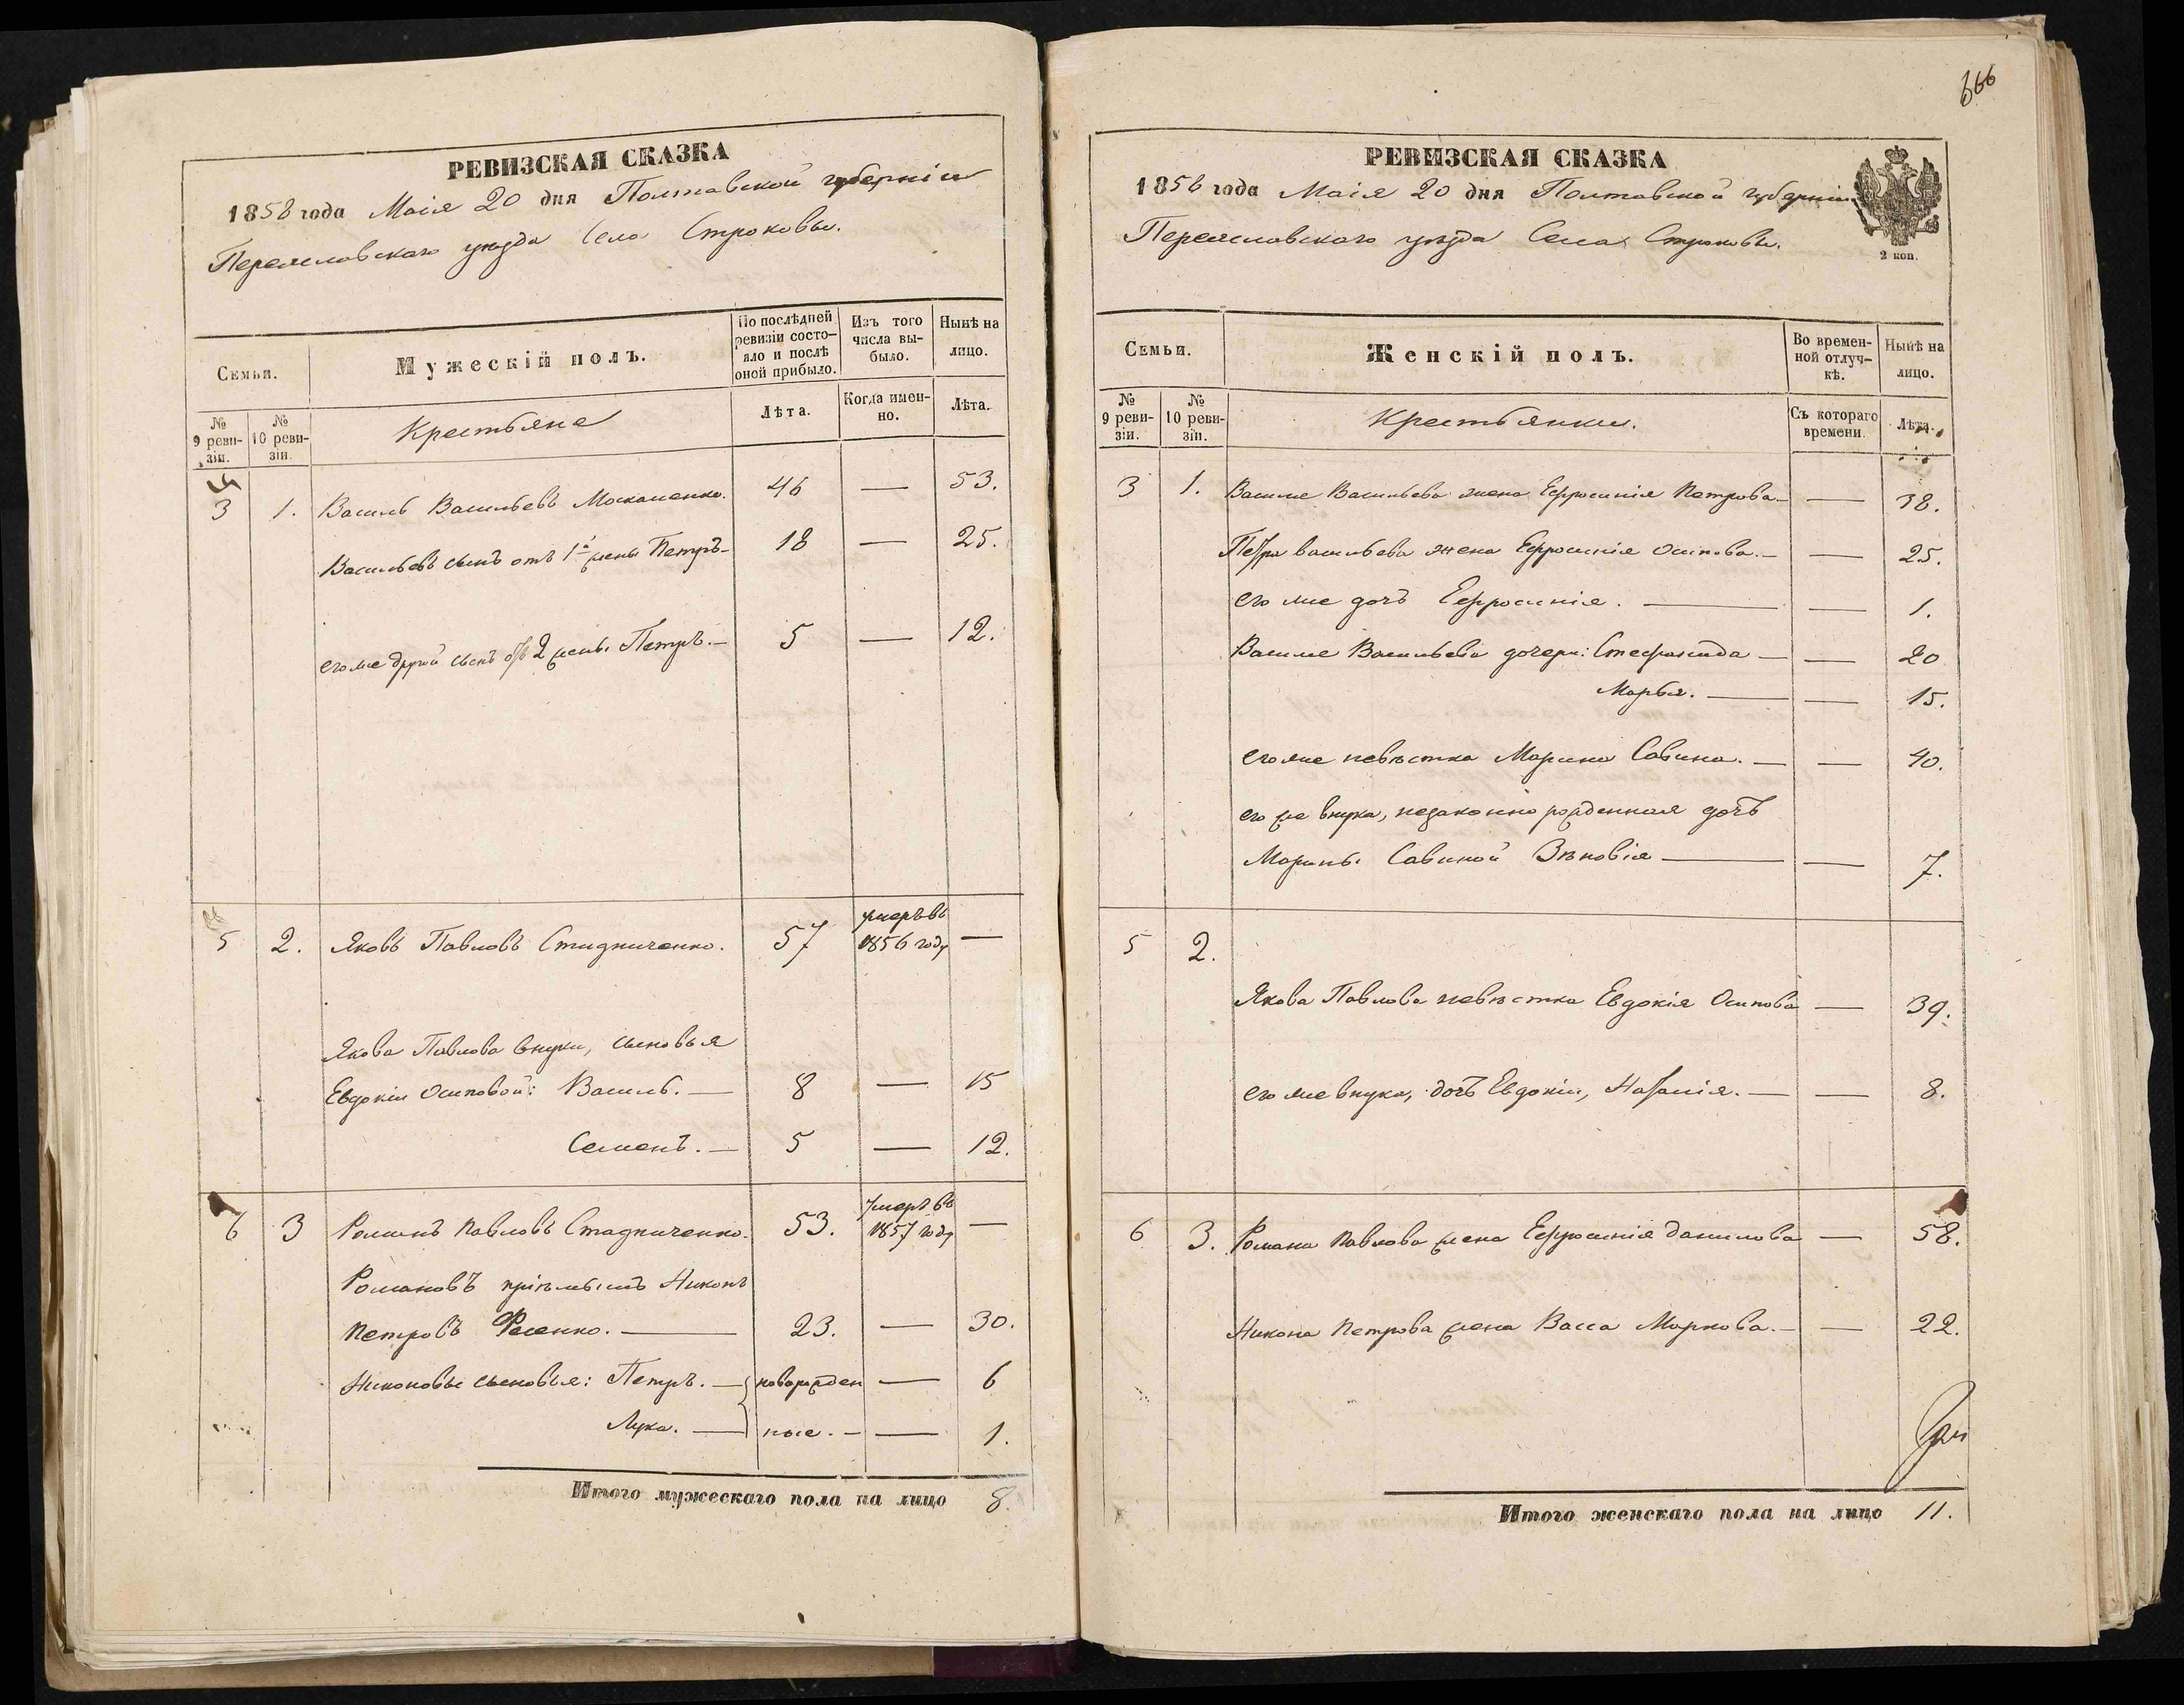 666
РЕВИЗСКАЯ СКАЗКА
1858 года Маія 20 дня Полтавской губерніи
Переяславскаго уѣзда Села Строковы.
Семьи.
Мужескій полъ.
По послѣдней ревизіи состо-
яло и послѣ
оной прибыло.
Изъ того
числа вы-
было.
Нынѣ на
лицо.
№
9 реви-
зіи.
№
10 реви-
зіи.
Крестьяне
Лѣта.
Когда имен-
но.
Лѣта.
3 1. Василь Васильевъ Москаленко. 46 — 53.
Васильевъ сынъ отъ 1й жены Петръ — 18 — 25.
его же другой сынъ отъ 2 жены Петръ. — 5 — 12.
5 2. Яковъ Павловъ Стадниченко. 57 умеръ въ
1856 году —
Якова Павлова внуки, сыновья
Евдокіи Осиповой: Василь. — 8 — 15
Семенъ. — 5 — 12.
6 3 Романъ Павловъ Стадниченко. 53. умеръ въ
1857 году —
Романовъ пріемышъ Никонъ
Петровъ — 23. — 30.
Никоновы сыновья: Петръ. — новорожден — 6
Лука. — ные. — — 1.
Итого мужескаго пола на лицо 8.
РЕВИЗСКАЯ СКАЗКА
1858 года Маія 20 дня Полтавской губерніи
Переяславскаго уѣзда Села Строковы.
2 коп.
Семьи.
Женскій полъ.
Во времен-
ной отлуч-
кѣ.
Нынѣ на
лицо.
№
9 реви-
зіи.
№
10 реви-
зіи.
Крестьянки.
Съ котораго
времени.
Лѣта.
3 1. Василя Васильева жена Ефросинія Петрова — — 38.
Петра Васильева жена Ефросинія Осипова. — — 25.
его же дочь Ефросинія. — — 1.
Василя Васильева дочери: Стефанида — — 20
Марья. — — 15.
его же невѣстка Марина Савина. — — 40.
его же внука, незаконно рожденная дочь
Марины Савиной Зѣновія — — 7.
5 2.
Якова Павлова невѣстка Евдокія Осипова — 39.
его же внука, дочь Евдокіи, Наталія. — — 8.
6 3. Романа Павлова жена Ефросинія Данилова — 58.
Никона Петрова жена Васса Маркова. — — 22.
Итого женскаго пола на лицо 11.